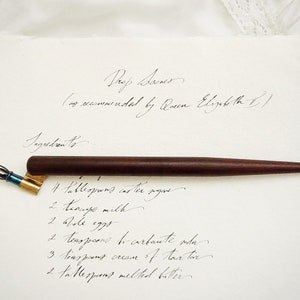 Drop Scones
(as recommended by Queen Elizabeth II)
Ingredients
4 tablespoons caster sugar
2 teacups milk
2 whole eggs
2 teaspoons bi-carbonate soda
3 teaspoons cream of tartar
2 tablespoons melted butter